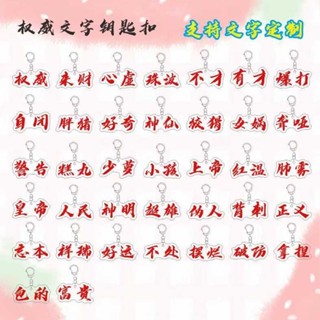 权威文字钥匙扣
支持文字定制
权威 来财 心虚 珠波 不才 有才 爆打
自闭 胖猪 好奇 神仙 狡猾 女娲 奔哑
警告 糕丸 少萝 小孩 上帝 红温 肺雾
皇帝 人民 神明 超雄 伪人 背刺 正义
忘本 祥瑞 好运 不处 摆烂 破防 拿捏
包的 富贵